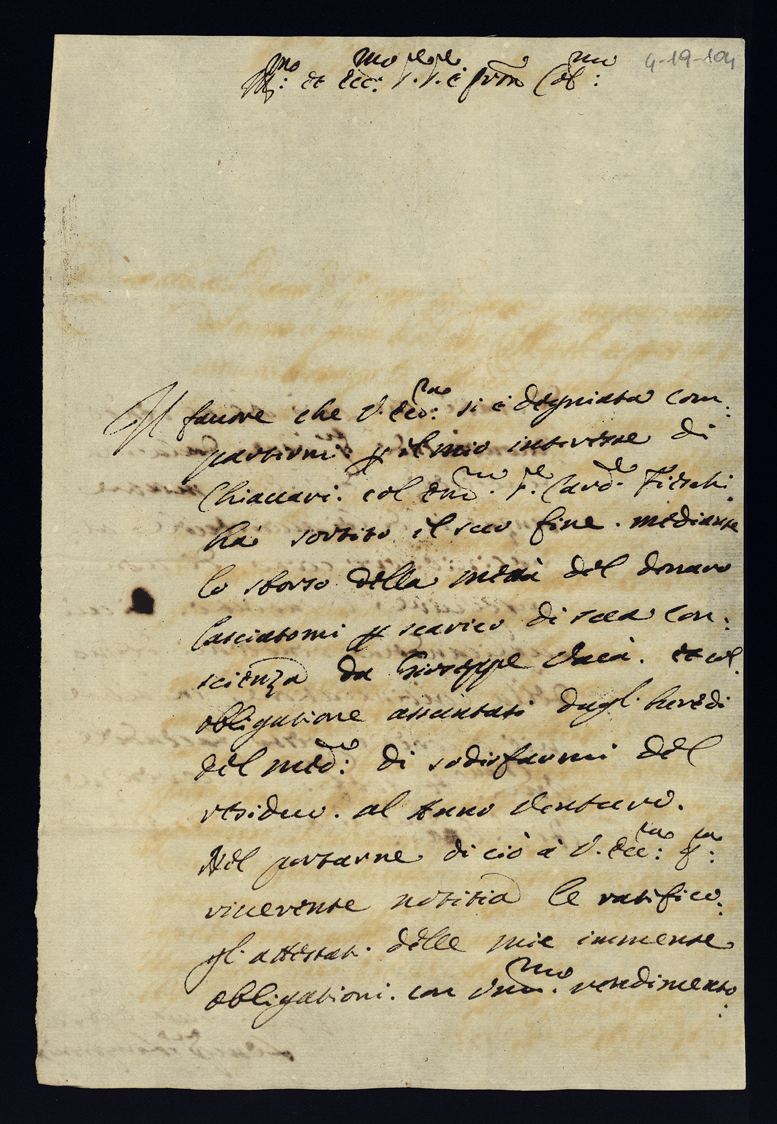 4-19-104
Ill:mo et Ecc:mo Sig.re Sig.re e Pron Col:mo
Il fauore che V. Ecc:za si è degniata com:
partirmi p il mio interesse di
Chiauari. col Em:mo S.re Card.le Fieschi.
hà sortito il suo fine. mediante
lo sborso della metà del denaro
lasciatomi p scarico di sua con:
scienza da Giuseppe et col
obligatione assuntasi dagl'heredi
del med:o di sodisfarmi del
residuo. al Anno venturo.
Nel portarne di ciò a V. Ecc:za
riuerente notitia le ratifico:
gl'attestati delle mie immense
obligationi. con rendimento: